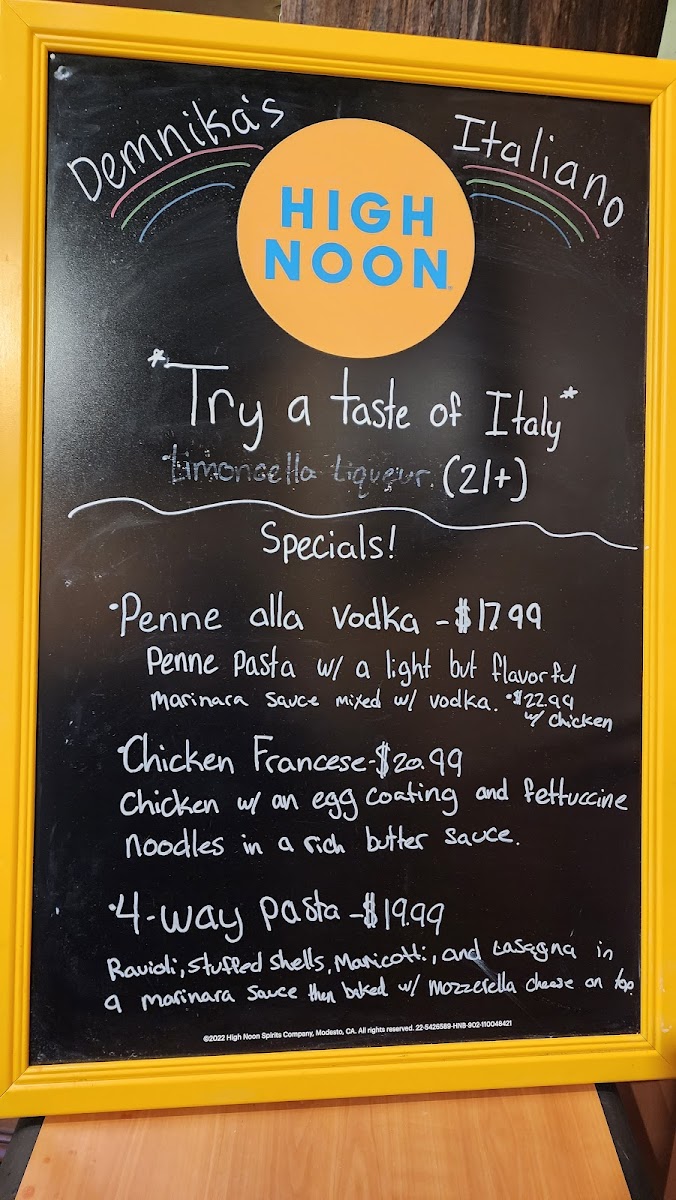 Demnika's Italiano
HIGH
NOON
*Try a taste of Italy*
Limoncella Liqueur (21+)
Specials!
•Penne alla vodka - $17.99
Penne Pasta w/ a light but flavorful
Marinara Sauce mixed w/ vodka. •$22.99
w/ chicken
•Chicken Francese-$20.99
Chicken w/ an egg coating and fettuccine
noodles in a rich butter sauce.
•4-way pasta -$19.99
Ravioli, Stuffed Shells, Manicotti, and Lasagna in
a marinara sauce then baked w/ Mozzerella cheese on top.
©2022 High Noon Spirits Company, Modesto, CA. All rights reserved. 22-5426589-HNB-902-110048421